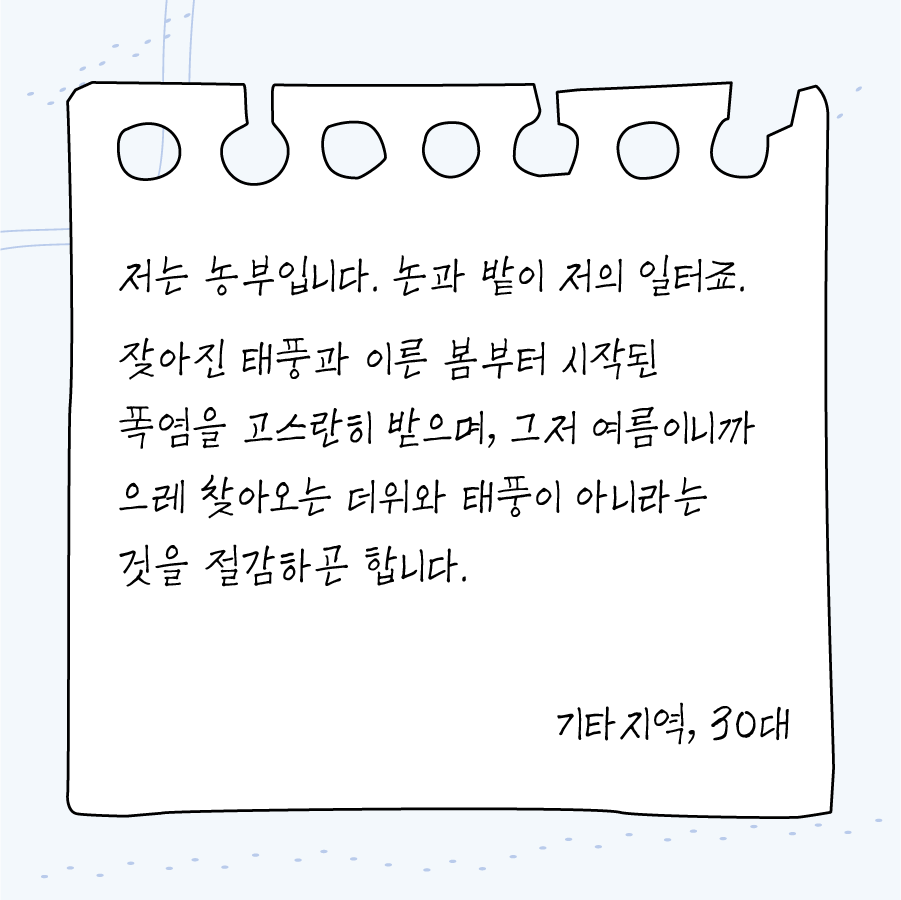 저는 농부입니다. 논과 밭이 저의 일터죠.
잦아진 태풍과 이른 봄부터 시작된
폭염을 고스란히 받으며, 그저 여름이니까
으레 찾아오는 더위와 태풍이 아니라는
것을 절감하곤 합니다.
기타지역, 30대